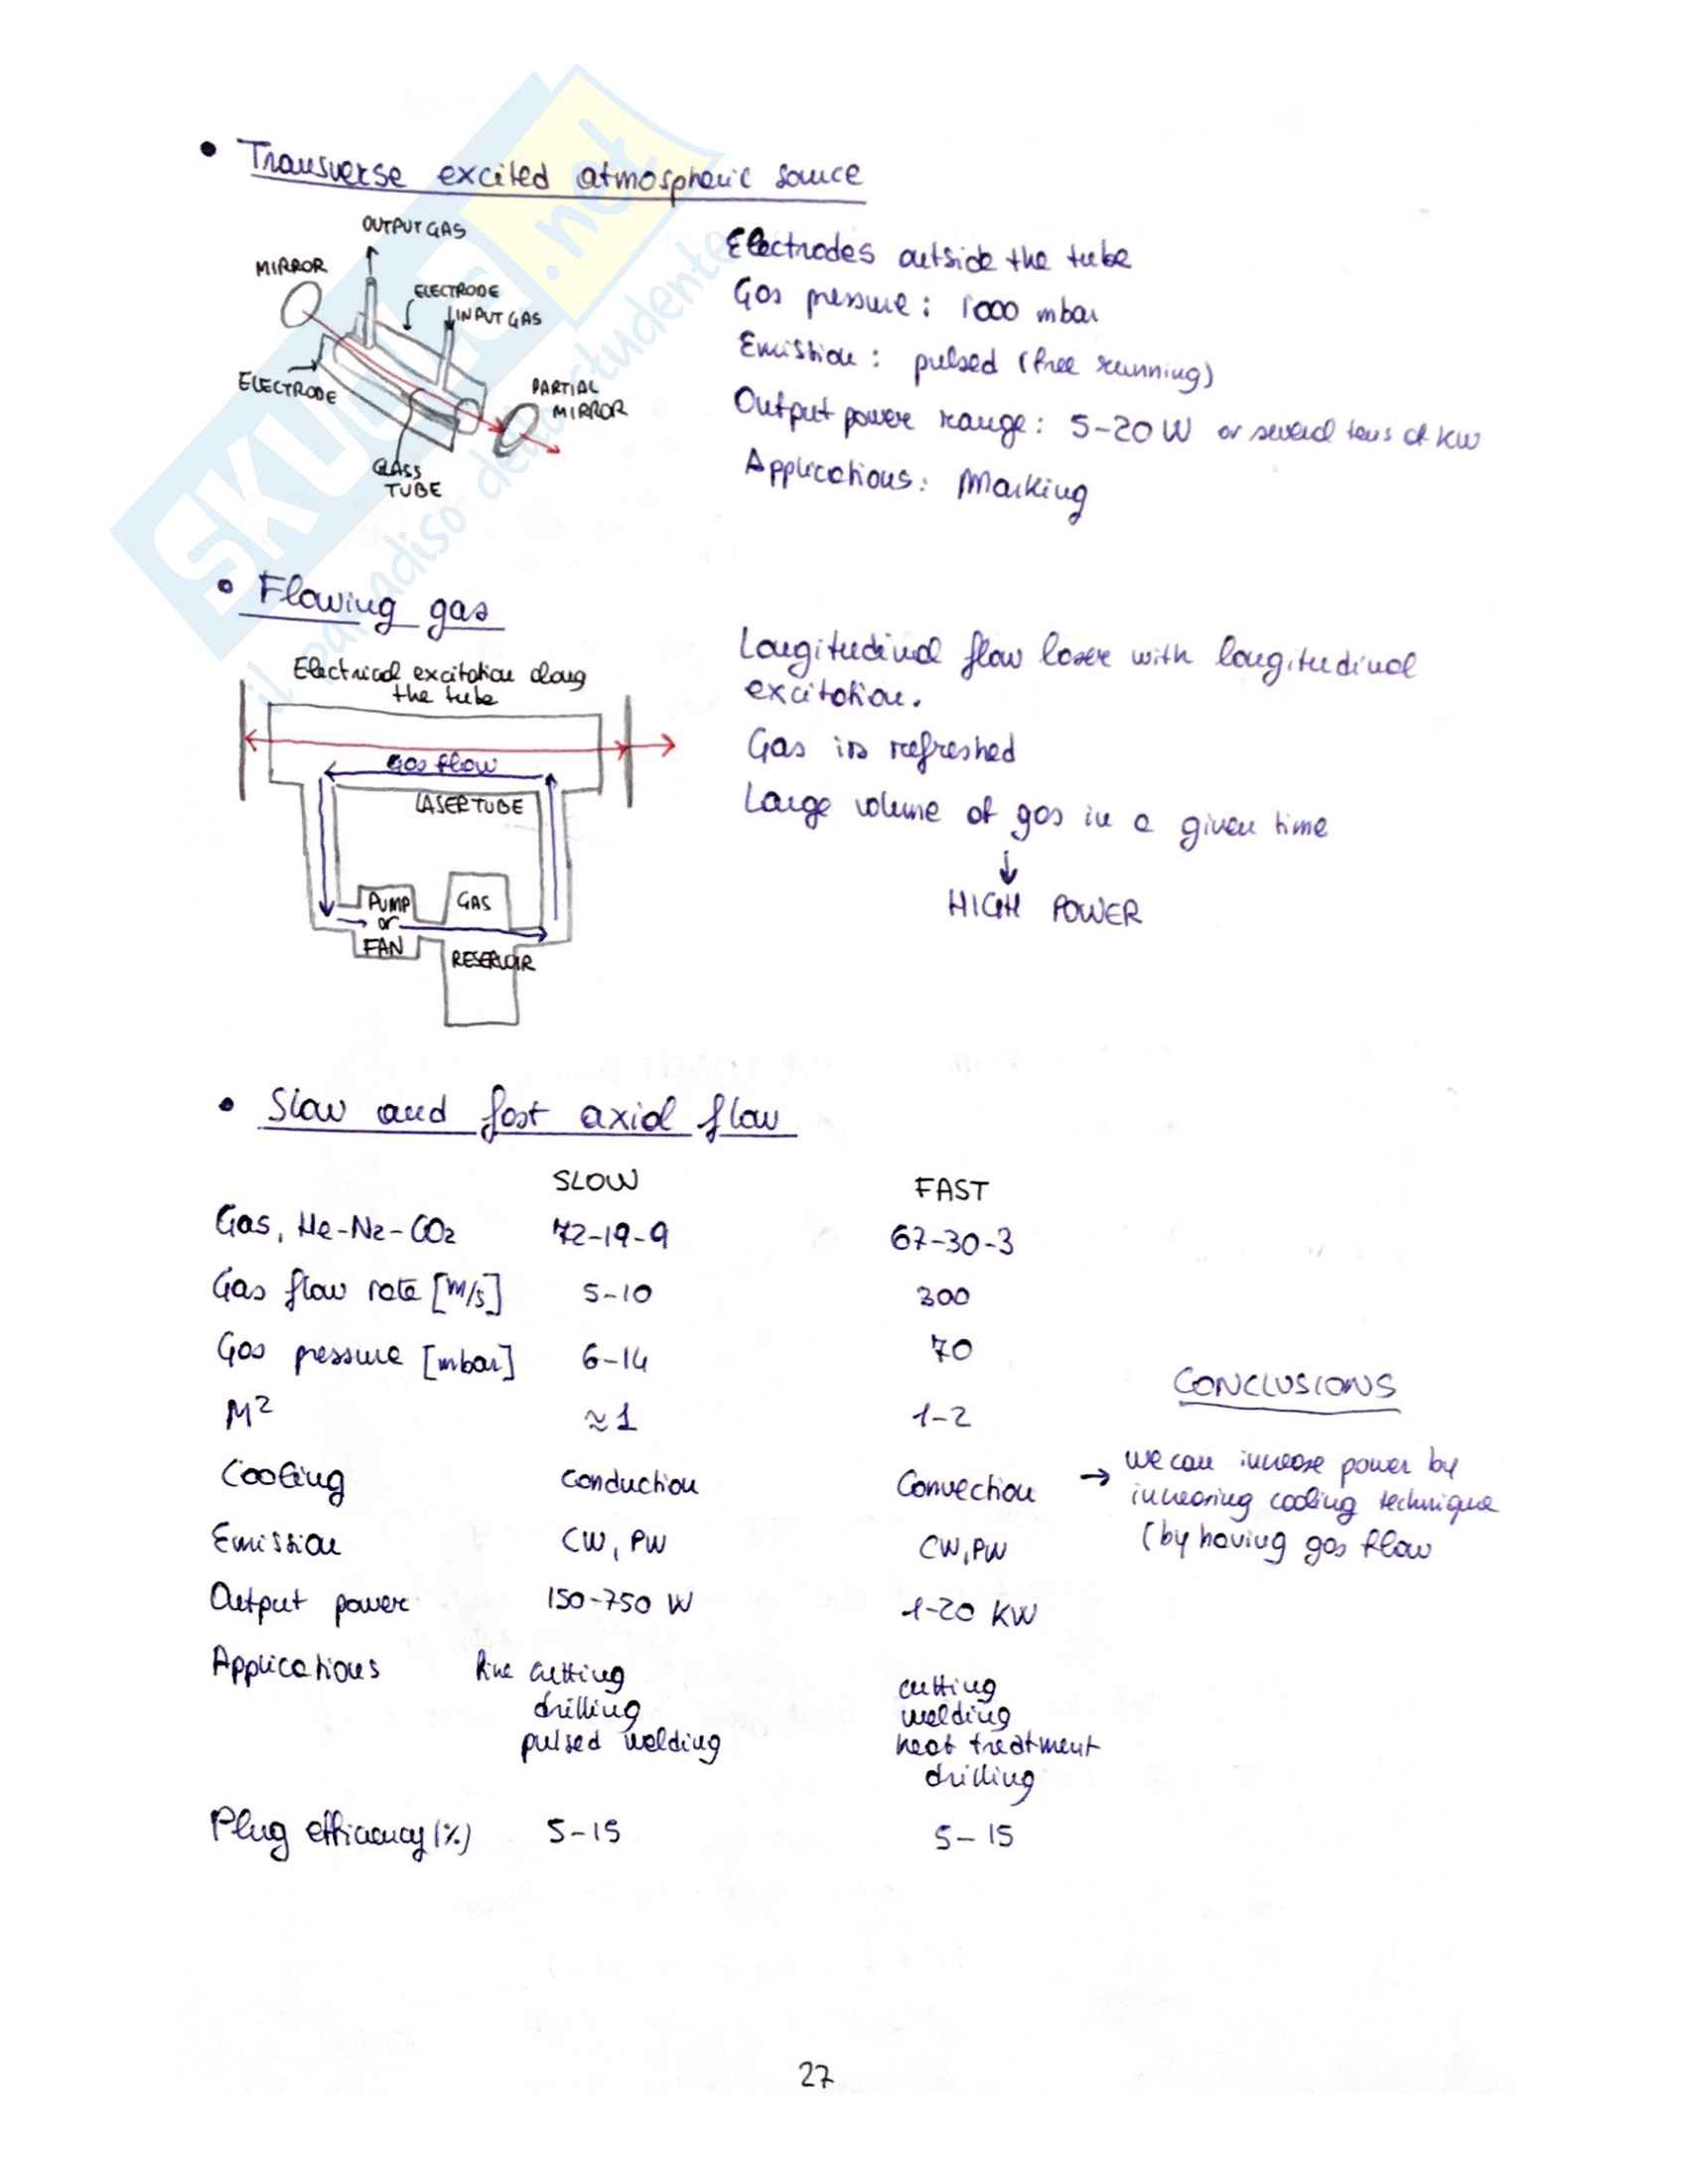 • Transverse excited atmospheric source
OUTPUT GAS
MIRROR
ELECTRODE
INPUT GAS
ELECTRODE
PARTIAL
MIRROR
GLASS
TUBE
Electrodes outside the tube
Gas pressure: 1000 mbar
Emission: pulsed (free running)
Output power range: 5-20 W or several tens of KW
Applications: Marking
SKUOLA.net
il paradiso dello studente
• Flowing gas
Electrical excitation along
the tube
Gas flow
LASER TUBE
PUMP
or
FAN
GAS
RESERVOIR
Longitudinal flow laser with longitudinal
excitation.
Gas is refreshed
Large volume of gas in a given time
↓
HIGH POWER
• Slow and fast axial flow
SLOW FAST
Gas, He-N2-CO2 72-19-9 67-30-3
Gas flow rate [m/s] 5-10 300
Gas pressure [mbar] 6-14 70
M² ≈1 1-2
Cooling conduction Convection
Emission CW, PW CW, PW
Output power 150-750 W 1-20 KW
Applications fine cutting cutting
drilling welding
pulsed welding heat treatment
drilling
Plug efficiency (%) 5-15 5-15
CONCLUSIONS
→ we can increase power by
increasing cooling technique
(by having gas flow
27